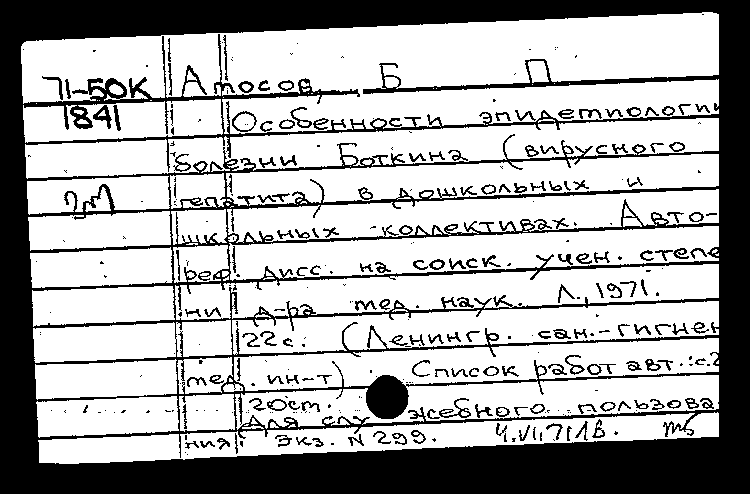 71-50К Атосов, Б П
1841 Особенности эпидемиологии
болезни Боткина (вирусного
2м гепатита) в дошкольных и
школьных коллективах. Авто-
реф. дисс. на соиск. учен. степе
ни д-ра мед. наук. Л., 1971.
22 с. (Ленингр. сан.-гигиен
мед. ин-т) Список работ авт.: с.2
20ст.
Для служебного пользова
ния. Экз. N 299. 4.VI.71 IБ.